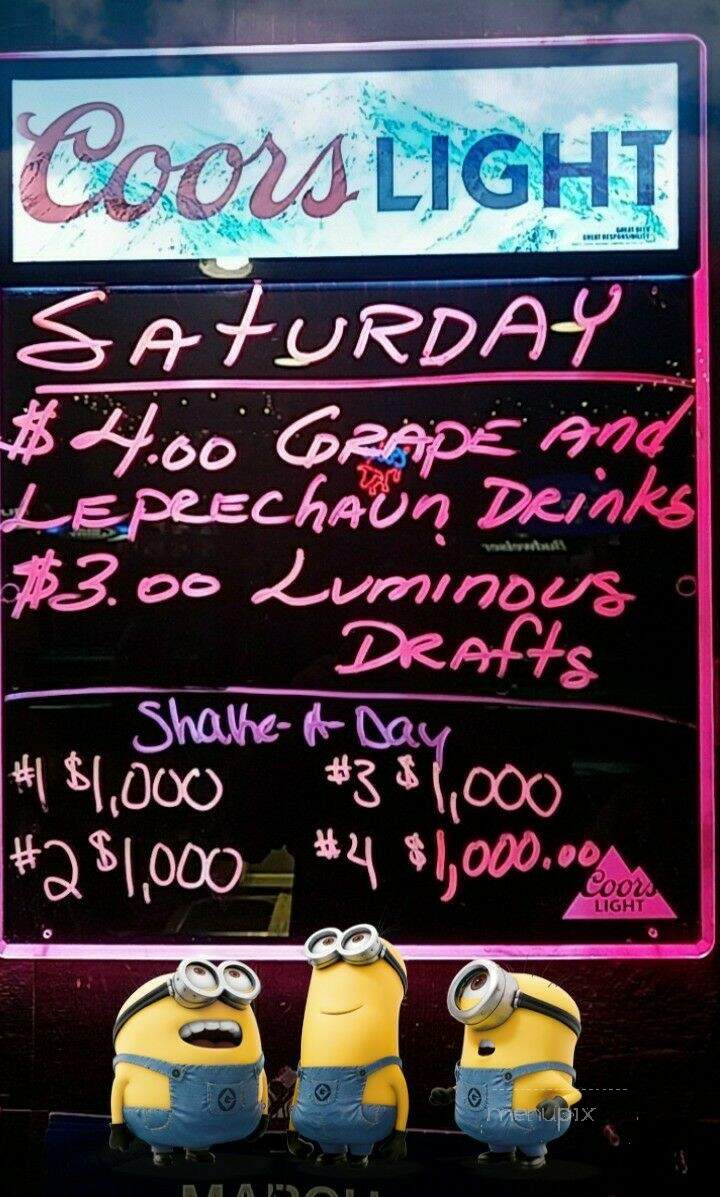 Coors LIGHT
GREAT BEER
GREAT RESPONSIBILITY
SATURDAY
$4.00 GRAPE And
LEPRECHAUN DRinks
$3.00 Luminous
DRAfts
Shake-A-Day
#1 $1,000 #3 $1,000
#2 $1,000 #4 $1,000.00
Coors
LIGHT
menupix